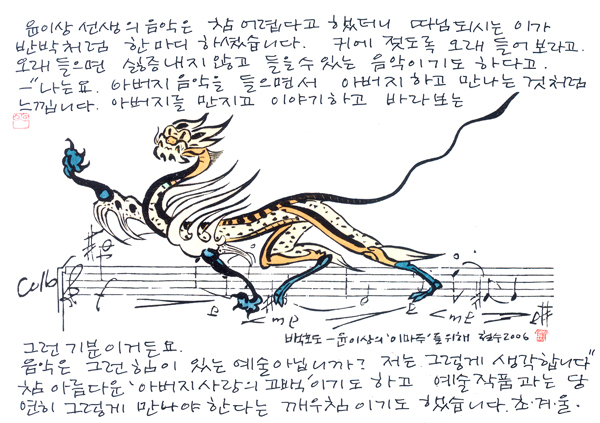 윤이상 선생의 음악은 참 어렵다고 했더니 따님되시는 이가
반박처럼 한마디 하셨습니다. 귀에 젖도록 오래 들어보라고.
오래 들으면 싫증내지 않고 들을 수 있는 음악이기도 하다고.
-"나는요. 아버지 음악을 들으면서 아버지하고 만나는 것처럼
느낍니다. 아버지를 만지고 이야기하고 바라보는
Cello
mp
mp
백호도 - 윤이상의 '이마주'를 위해 철수 2006
그런 기분이거든요.
음악은 그런 힘이 있는 예술 아닙니까? 저는 그렇게 생각합니다"
참 아름다운 '아버지 사랑의 고백'이기도 하고 예술작품과는 당
연히 그렇게 만나야 한다는 깨우침이기도 했습니다. 초·겨·울·